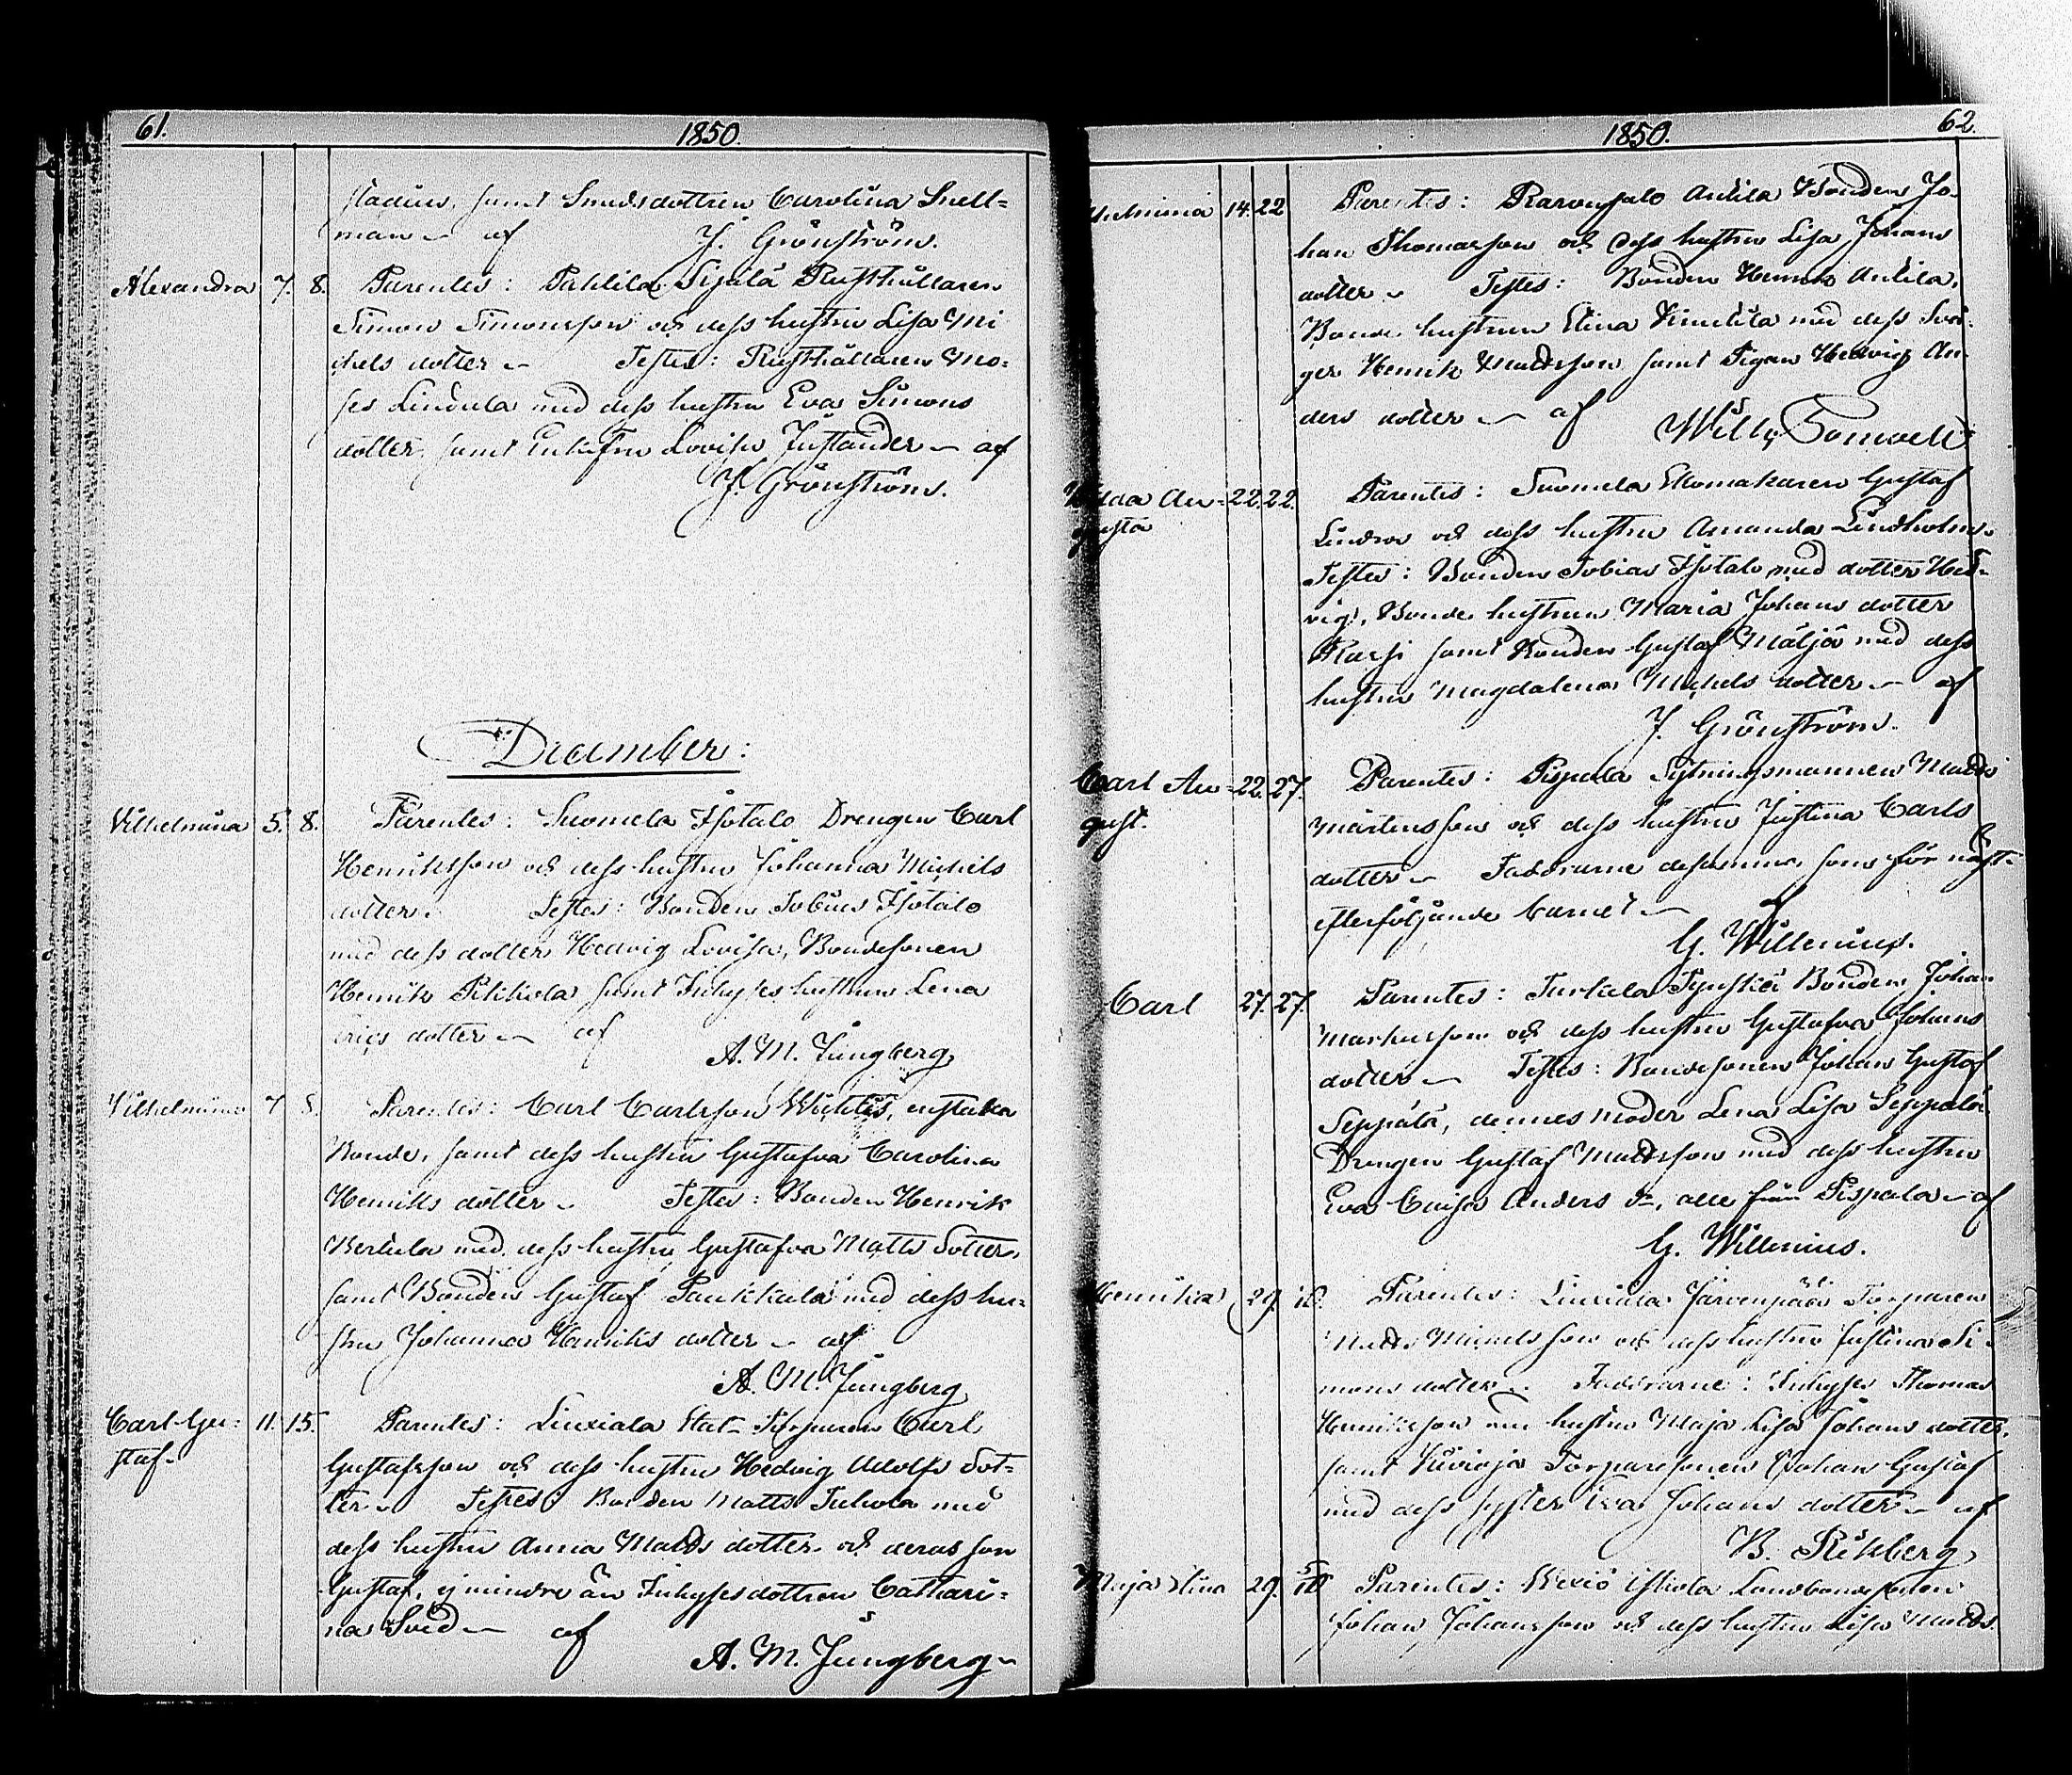 61.
1850.
stadius, samt Smedsdottren Carolina Snell=
man – af J. Grönström.
Alexandra 7. 8. Parentes: Pahlila Sipilä Rusthållaren
Simon Simonsson och dess hustru Lisa Mi
chels dotter – Testes: Rusthållaren Mo-
ses Lindula med dess hustru Eva Simons
dotter, samt Enkefru Lovisa – af
J. Grönström.
December:
Vilhelmina 5. 8. Parentes: Suomela Isotalo Drengen Carl
Henriksson och dess hustru Johanna Michels
dotter. Testes: Bonden Tobias Isotalo
med dess dotter Hedvig Lovisa, Bondesonen
Henrik Pikkola samt Inhyses hustrun Lena
Erics dotter – af A. M. Ljungberg
Vilhelmina 7 8. Parentes: Carl Carlsson
Bonde, samt dess hustru Gustafva Carolina
Henriks dotter – Testes: Bonden Henrik
Bertula med dess hustru Gustafva Matts dotter,
samt Bonden Gustaf med dess hu=
stru Johanna Henriks dotter – af
A. M. Ljungberg
Carl Gu= 11. 15. Parentes: Liuxiala Stat-Torparen Carl
staf – Gustafsson och dess hustru Hedvig Adolfs dot=
ter – Testes: Bonden Matts Tuhola med
dess hustru Anna Matts dotter och deras son
Gustaf, ej mindre än Inhysesdottren Cathari=
na Svid – af
A. M. Ljungberg –
1850.
62.
14. 22 Parentes: Anttila Bonden Jo-
han Thomasson och dess hustru Lisa Johans
dotter – Testes: Bonden Henrik Anttila,
Bonde hustrun Elina med dess Svå-
ger Henrik Mattsson samt Pigan Hedvig An-
ders dotter – af
Hilda Au- 22. 22. Parentes: Suomela Skomakaren Gustaf
gusta Lindroos och dess hustru Amanda Lindholm.
Testes: Bonden Tobias Isotalo med dotter Hed-
vig, Bonde hustrun Maria Johans dotter
samt Bonden Gustaf Mäljä med dess
hustru Magdalena Michels dotter – af
J. Grönström.
Carl Au- 22. 27. Parentes: Pispala Sytningsmannen Matts
gust. Mårtensson och dess hustru Justina Carls
dotter – Faddrarne desamma, som för näst-
efterföljande barnet – af
G. Willenius.
Carl 27. 27. Parentes: Turkala Bonden Johan
Markusson och dess hustru Gustafva Johans
dotter – Testes: Bondesonen Johan Gustaf
Seppälä, dennes moder Lena Lisa Seppälä
Drengen Gustaf Mattsson med dess hustru
Eva Caisa Anders dr, alle från Pispala – af
G. Willenius.
Henrika 29. Parentes: Liuxiala Järvenpää Torparen
Matts Michelsson och dess hustru Justina Si-
mons dotter – Faddrarne: Inhyses Thomas
Henriksson och hustru Maja Lisa Johans dotter,
samt Kivioja Torparesonen Johan Gustaf
med dess syster Eva Johans dotter – af
B. Rikberg
Maja Stina 29. 5/10 Parentes: Wexiö Landbondesonen
Johan Johansson och dess hustru Lisa Matts